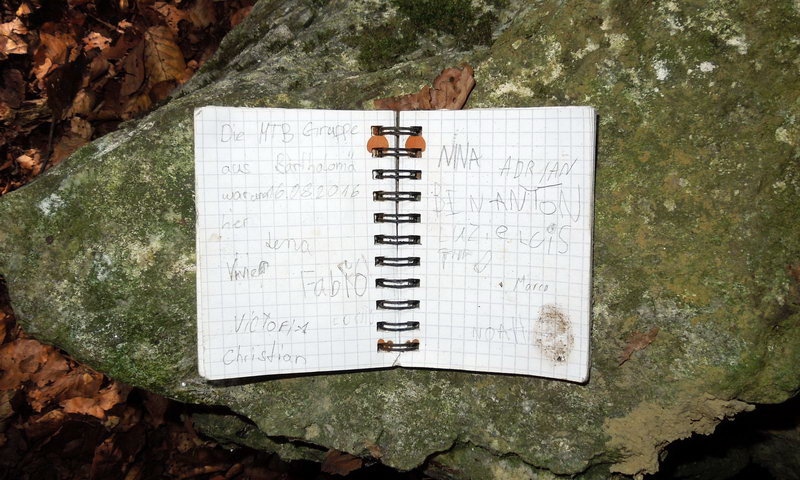 Die MTB Gruppe
aus Bartholomä
war am 16.08.2016
hier.
Lena
Fabio
Victoria
Christian
NiNA
ADRIAN
BEN ANTON
LOIS
Marco
NOAH